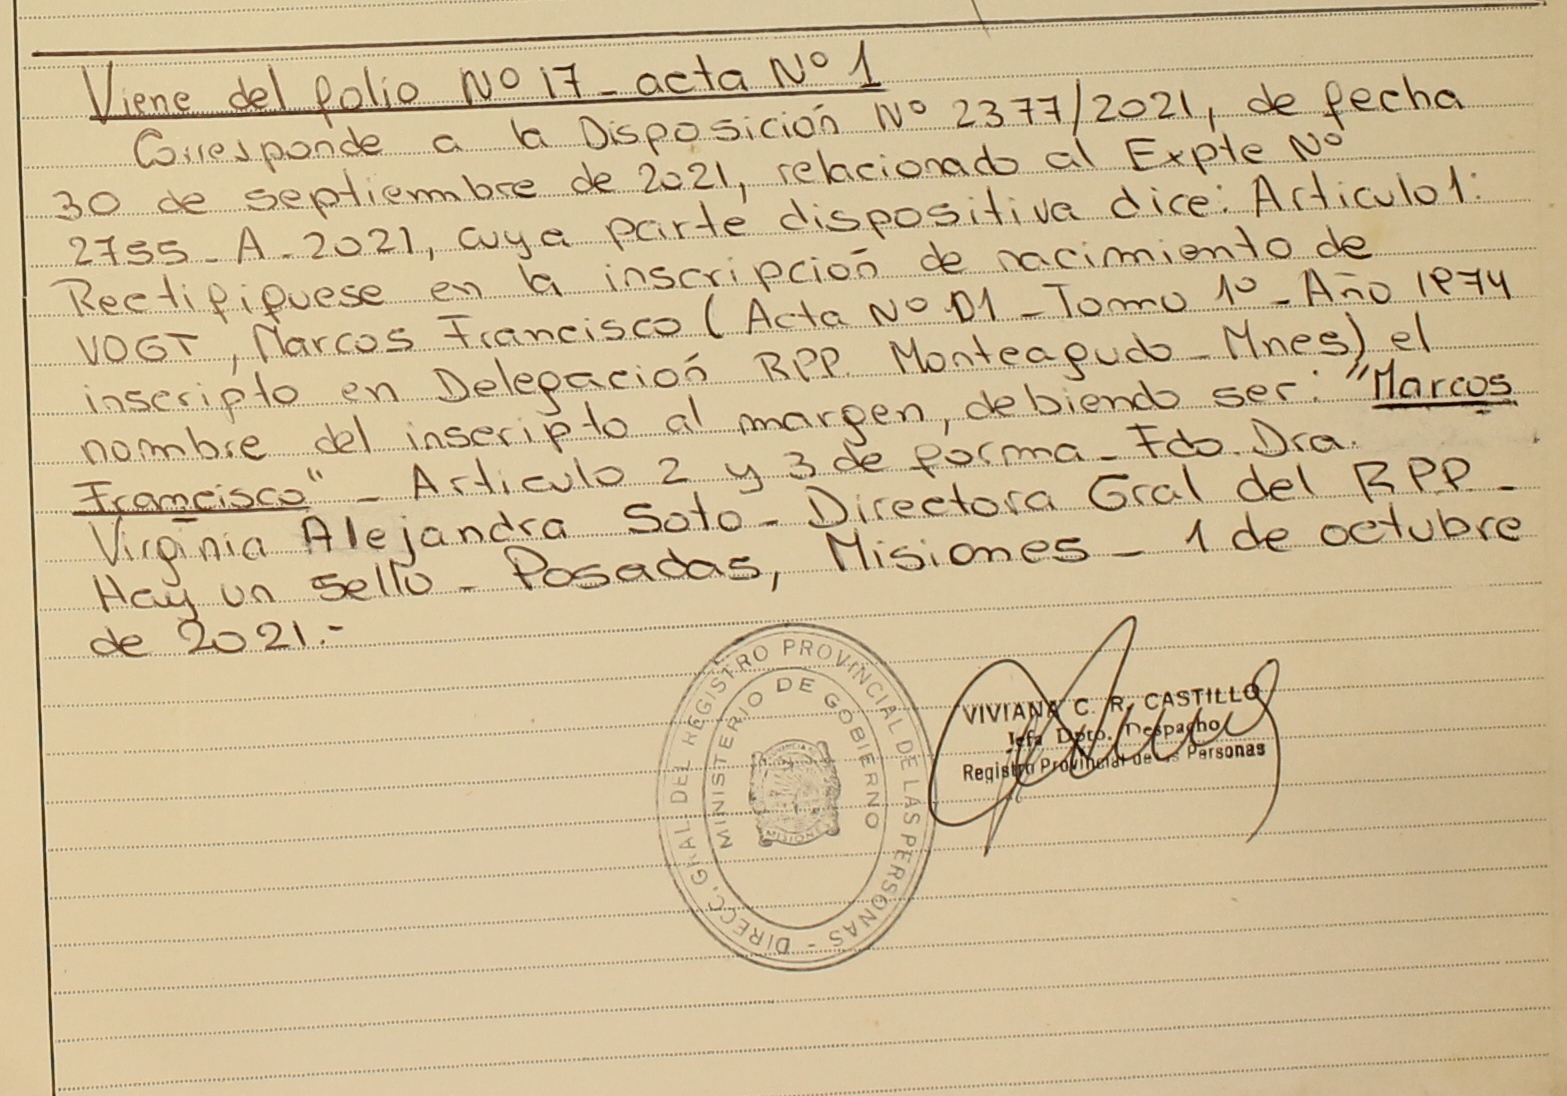 Viene del folio Nº 17 - acta Nº 1
Corresponde a la Disposición Nº 2377/2021, de fecha
30 de septiembre de 2021, relacionado al Expte Nº
2755 - A - 2021, cuya parte dispositiva dice: Articulo 1:
Rectifiquese en la inscripción de nacimiento de
VOGT, Marcos Francisco (Acta Nº 01 - Tomo 1º - Año 1974
inscripto en Delegación RPP. Monteagudo - Mnes) el
nombre del inscripto al margen, debiendo ser: "Marcos
Francisco" - Articulo 2 y 3 de forma - Fdo. Dra.
Virginia Alejandra Soto - Directora Gral del RPP -
Hay un sello - Posadas, Misiones - 1 de octubre
de 2021.-
DIRECC. GRAL. DEL REGISTRO PROVINCIAL DE LAS PERSONAS -
MINISTERIO DE GOBIERNO
MISIONES
VIVIANA C. R. CASTILLO
Jefa Dpto. Despacho
Registro Provincial de las Personas